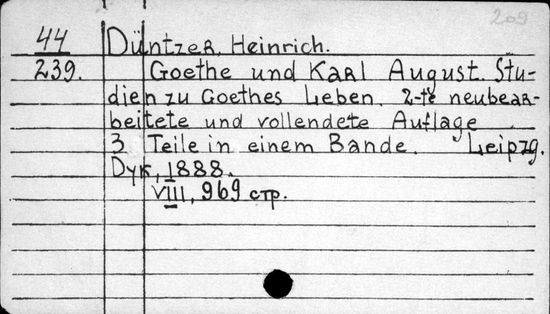 209
44 Düntzer, Heinrich.
239. Goethe und Karl August. Stu-
dien zu Goethes Leben. 2-te neubear-
beitete und vollendete Auflage
3 Teile in einem Bande. Leipzg.
Dyk, 1888.
VIII, 969 стр.